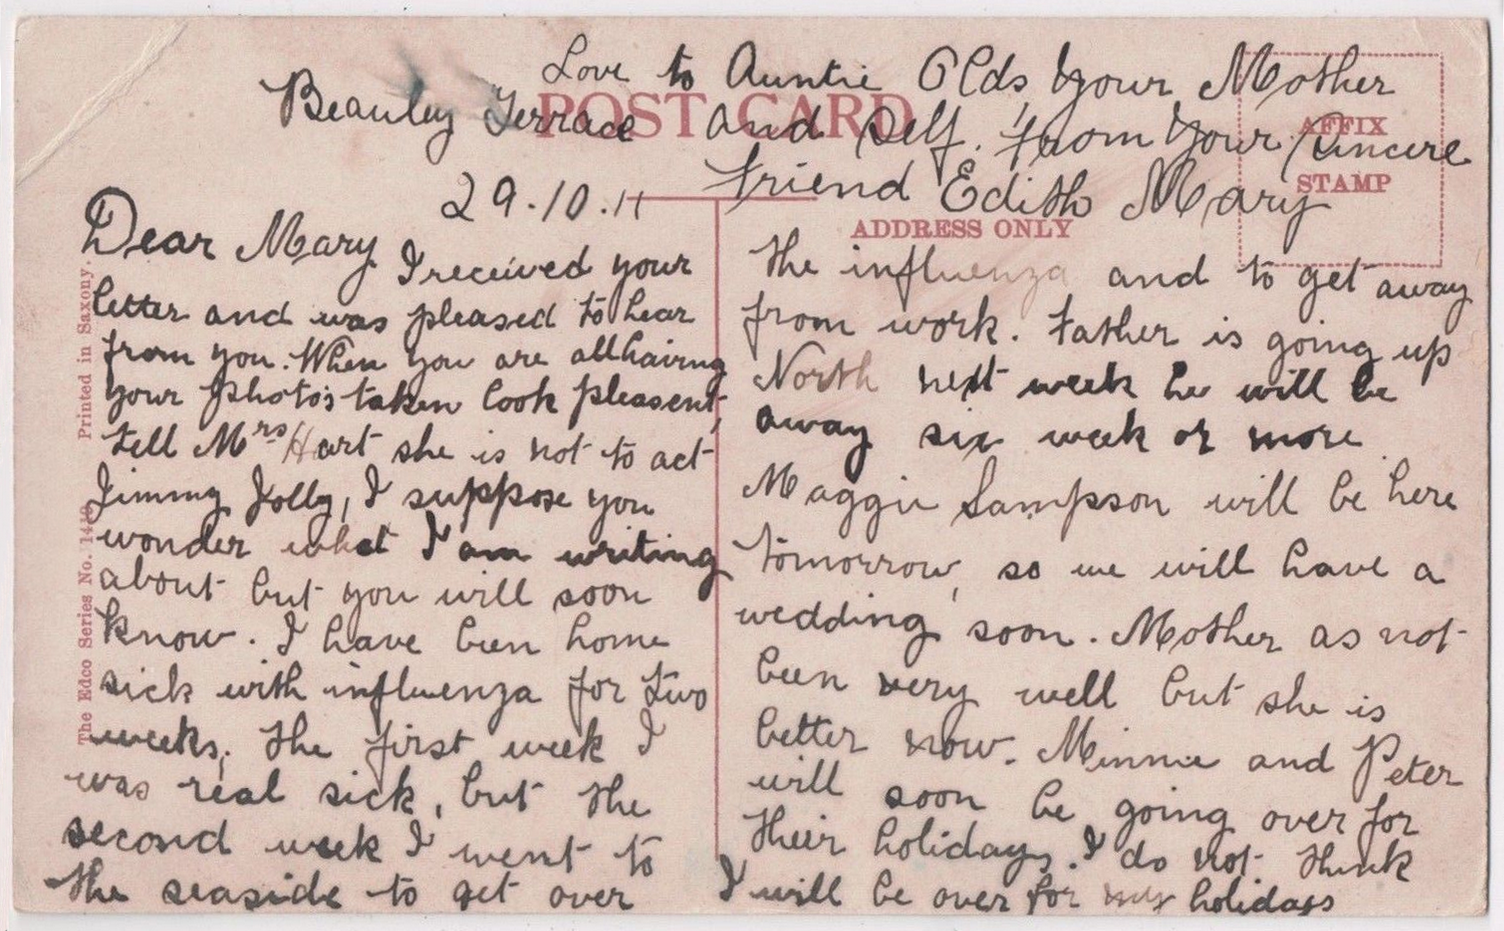 Beauley Terrace
29.10.11
Dear Mary I received your
letter and was pleased to hear
from you. When you are all hairng
your photo's taken look pleasent,
tell Mrs Hart she is not to act
Jimmy Jolly, I suppose you
wonder what I am writing
about but you will soon
know. I have been home
sick with influenza for two
weeks, the first week I
was real sick, but the
second week I went to
the seaside to get over
the influenza and to get away
from work. Father is going up
North next week he will be
away six week or more.
Maggie Sampson will be here
tomorrow, so we will have a
wedding soon. Mother as not
been very well but she is
better now. Minnie and Peter
will soon be going over for
their holidays. I do not think
I will be over for my holidays
Love to Auntie Olds, your Mother
and Self. from Your Sincere
friend Edith Mary
POST CARD
AFFIX
STAMP
ADDRESS ONLY
The Edco Series No. 1410 Printed in Saxony.